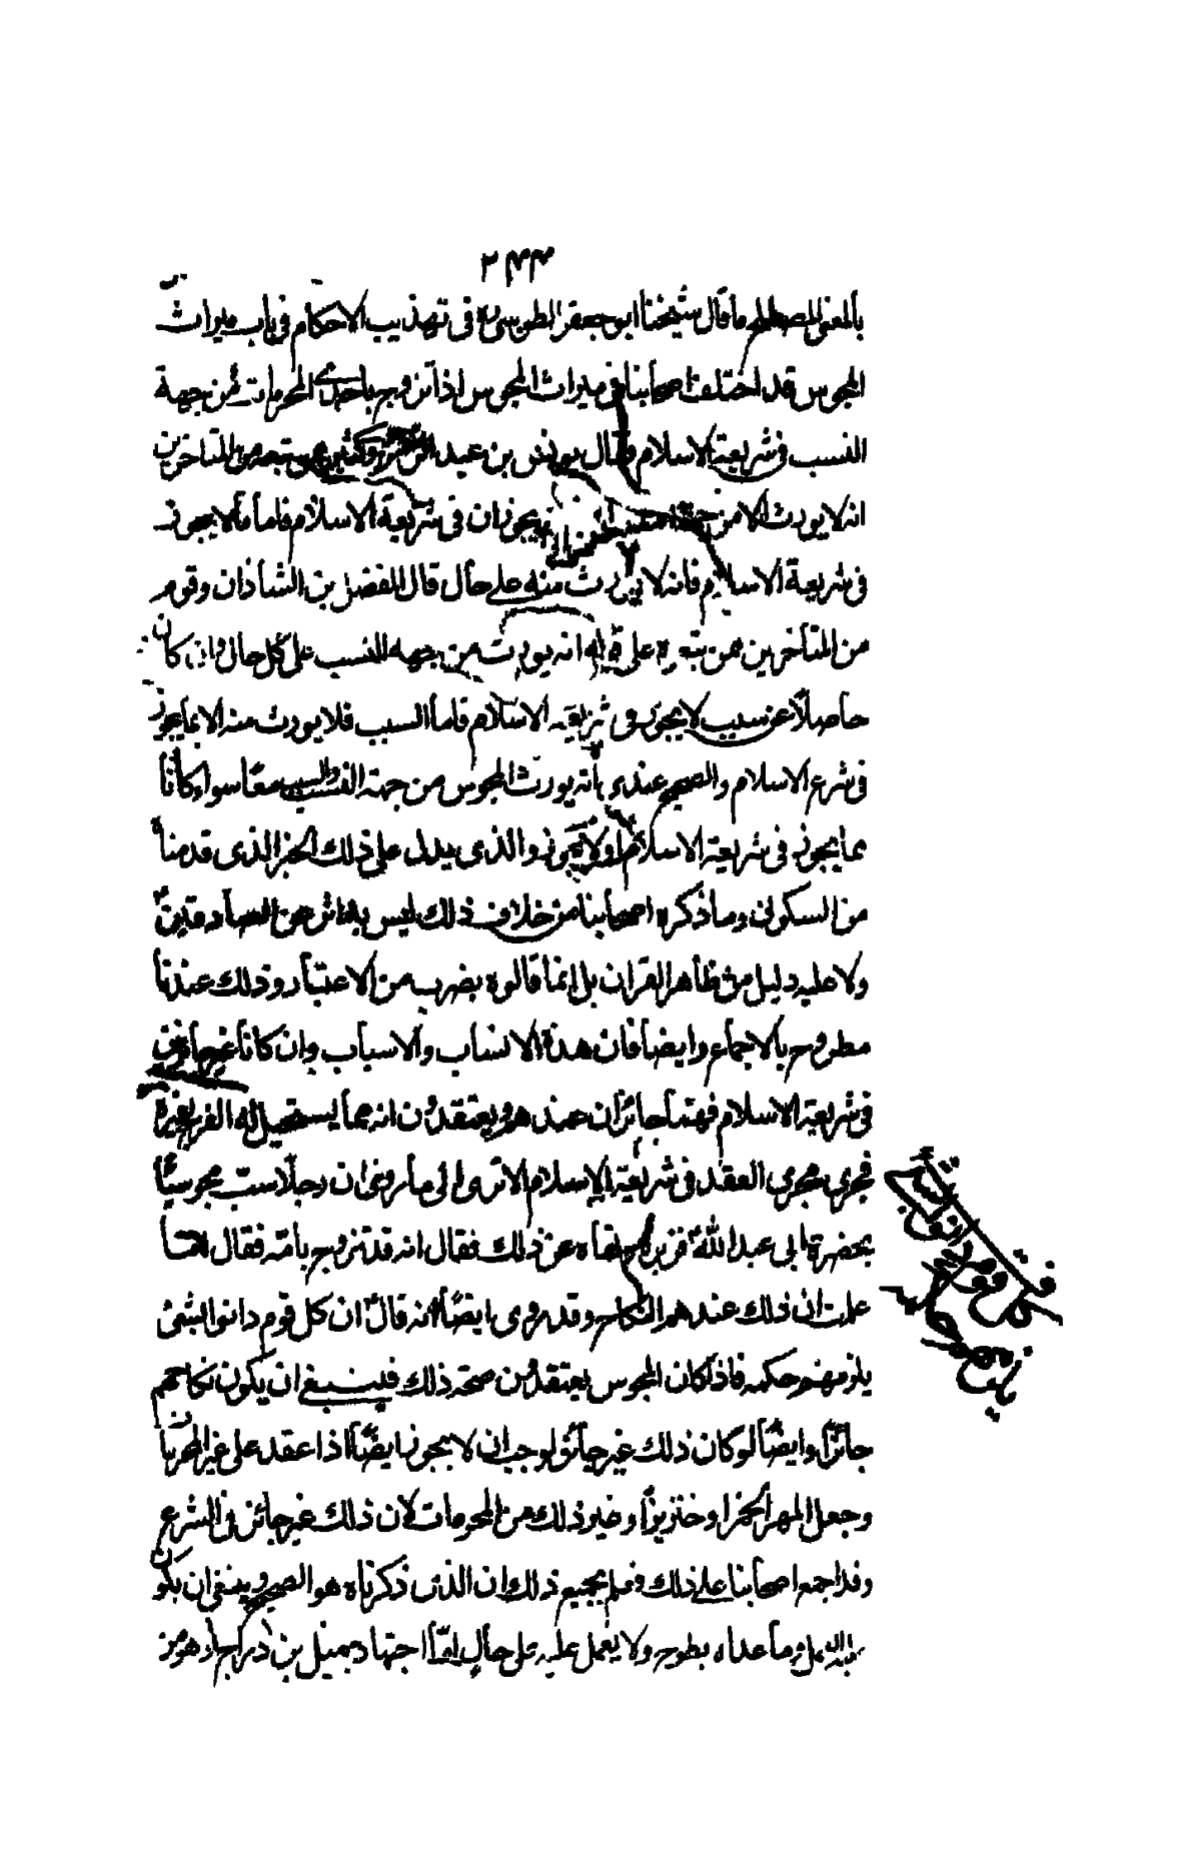 ٢٤٣
بالمعنى المصطلح ما قال شيخنا ابو جعفر الطوسى ره فى تهذيب الاحكام فى باب ميراث
المجوس قد اختلف اصحابنا فى ميراث المجوس اذا تزوج باحدى المحرمات من جهة
النسب فى شريعة الاسلام فقال يونس بن عبد الرحمن وكثير ممن تبعه من المتاخرين
انه لا يورث الا من جهة يجوزان فى شريعة الاسلام فاما ما لا يجوز
فى شريعة الاسلام فانه لا يورث منه على حال قال الفضل بن الشاذان وقوم
من المتاخرين ممن تبعوه على قوله انه يورث من جهه النسب على كل حال وان كان
حاصلا عن سبب لا يجوز فى شريعه الاسلام فاما السبب فلا يورث منه الا بما يجوز
فى شرع الاسلام والصحيح عندى بانه يورث المجوس من جهة النسب والسبب معا سواء كانا
مما يجوز فى شريعة الاسلام اولا يجوز والذى يدل على ذلك الخبر الذى قدمنا
من السكونى وما ذكره اصحابنا من خلاف ذلك ليس به اثر من الصادقين
ولا عليه دليل من ظاهر القران بل انما قالوه بضرب من الاعتبار وذلك عندنا
مطروح بالاجماع وايضا فان هذه الانساب والاسباب وان كانا غير جائزين
فى شريعة الاسلام فهما جائزان عندهم ويعتقدون انه مما يستحيل به الفرج
فجرى مجرى العقد فى شريعة الاسلام الا ترى الى ما روى ان رجلا سب مجوسيا
بحضرة ابى عبد الله فزبره ونهاه عن ذلك فقال انه قد تزوج بامه فقال اما
علمت ان ذلك عندهم النكاح وقد روى ايضا انه قال ان كل قوم دانوا بشئ
يلزمهم حكمه فاذا كان المجوس يعتقدون صحة ذلك فينبغى ان يكون نكاحهم
جائزا وايضا لو كان ذلك غير جائز لوجب ان لا يجوز ايضا اذا عقد على غير المحرمات
وجعل المهر خمرا وخنزيرا وغير ذلك من المحرمات لان ذلك غير جائز فى الشرع
وقد اجمع اصحابنا على ذلك فعلم بجميع ذلك ان الذى ذكرناه هو الصحيح وينبغى ان يكون
عليه العمل وما عداه يطرح ولا يعمل عليه على حال اما اجتهاد جميل بن دراج اذ هو من
كل قوم دانوا بشئ
يلزمهم حكمه